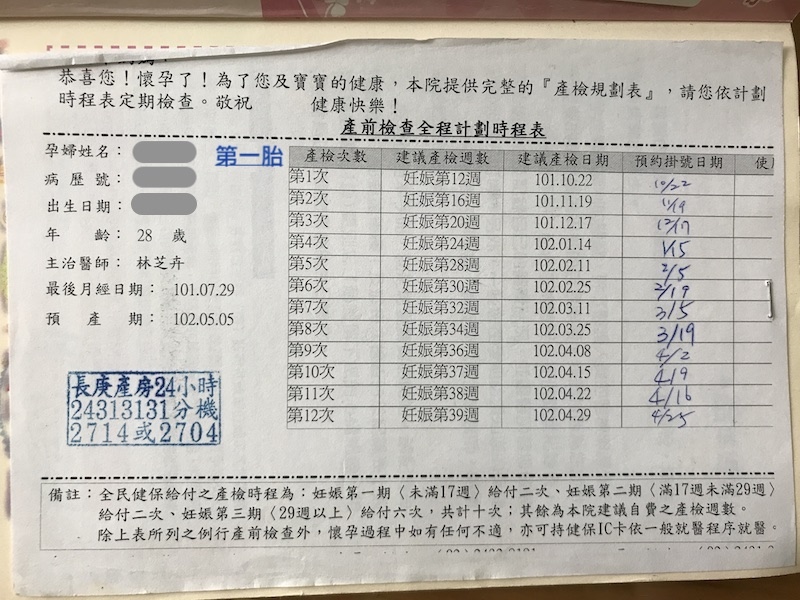 恭喜您！懷孕了！為了您及寶寶的健康，本院提供完整的『產檢規劃表』，請您依計劃
時程表定期檢查。敬祝 健康快樂！
產前檢查全程計劃時程表
孕婦姓名：
第一胎
病歷號：
出生日期：
年 齡： 28 歲
主治醫師： 林芝卉
最後月經日期： 101.07.29
預 產 期： 102.05.05
長庚產房24小時
24313131分機
2714或2704
產檢次數 建議產檢週數 建議產檢日期 預約掛號日期
第1次 妊娠第12週 101.10.22 10/22
第2次 妊娠第16週 101.11.19 11/19
第3次 妊娠第20週 101.12.17 12/17
第4次 妊娠第24週 102.01.14 1/15
第5次 妊娠第28週 102.02.11 2/5
第6次 妊娠第30週 102.02.25 2/19
第7次 妊娠第32週 102.03.11 3/5
第8次 妊娠第34週 102.03.25 3/19
第9次 妊娠第36週 102.04.08 4/2
第10次 妊娠第37週 102.04.15 4/9
第11次 妊娠第38週 102.04.22 4/16
第12次 妊娠第39週 102.04.29 4/25
備註：全民健保給付之產檢時程為：妊娠第一期〈未滿17週〉給付二次、妊娠第二期〈滿17週未滿29週〉
給付二次、妊娠第三期〈29週以上〉給付六次，共計十次；其餘為本院建議自費之產檢週數。
除上表所列之例行產前檢查外，懷孕過程中如有任何不適，亦可持健保IC卡依一般就醫程序就醫。